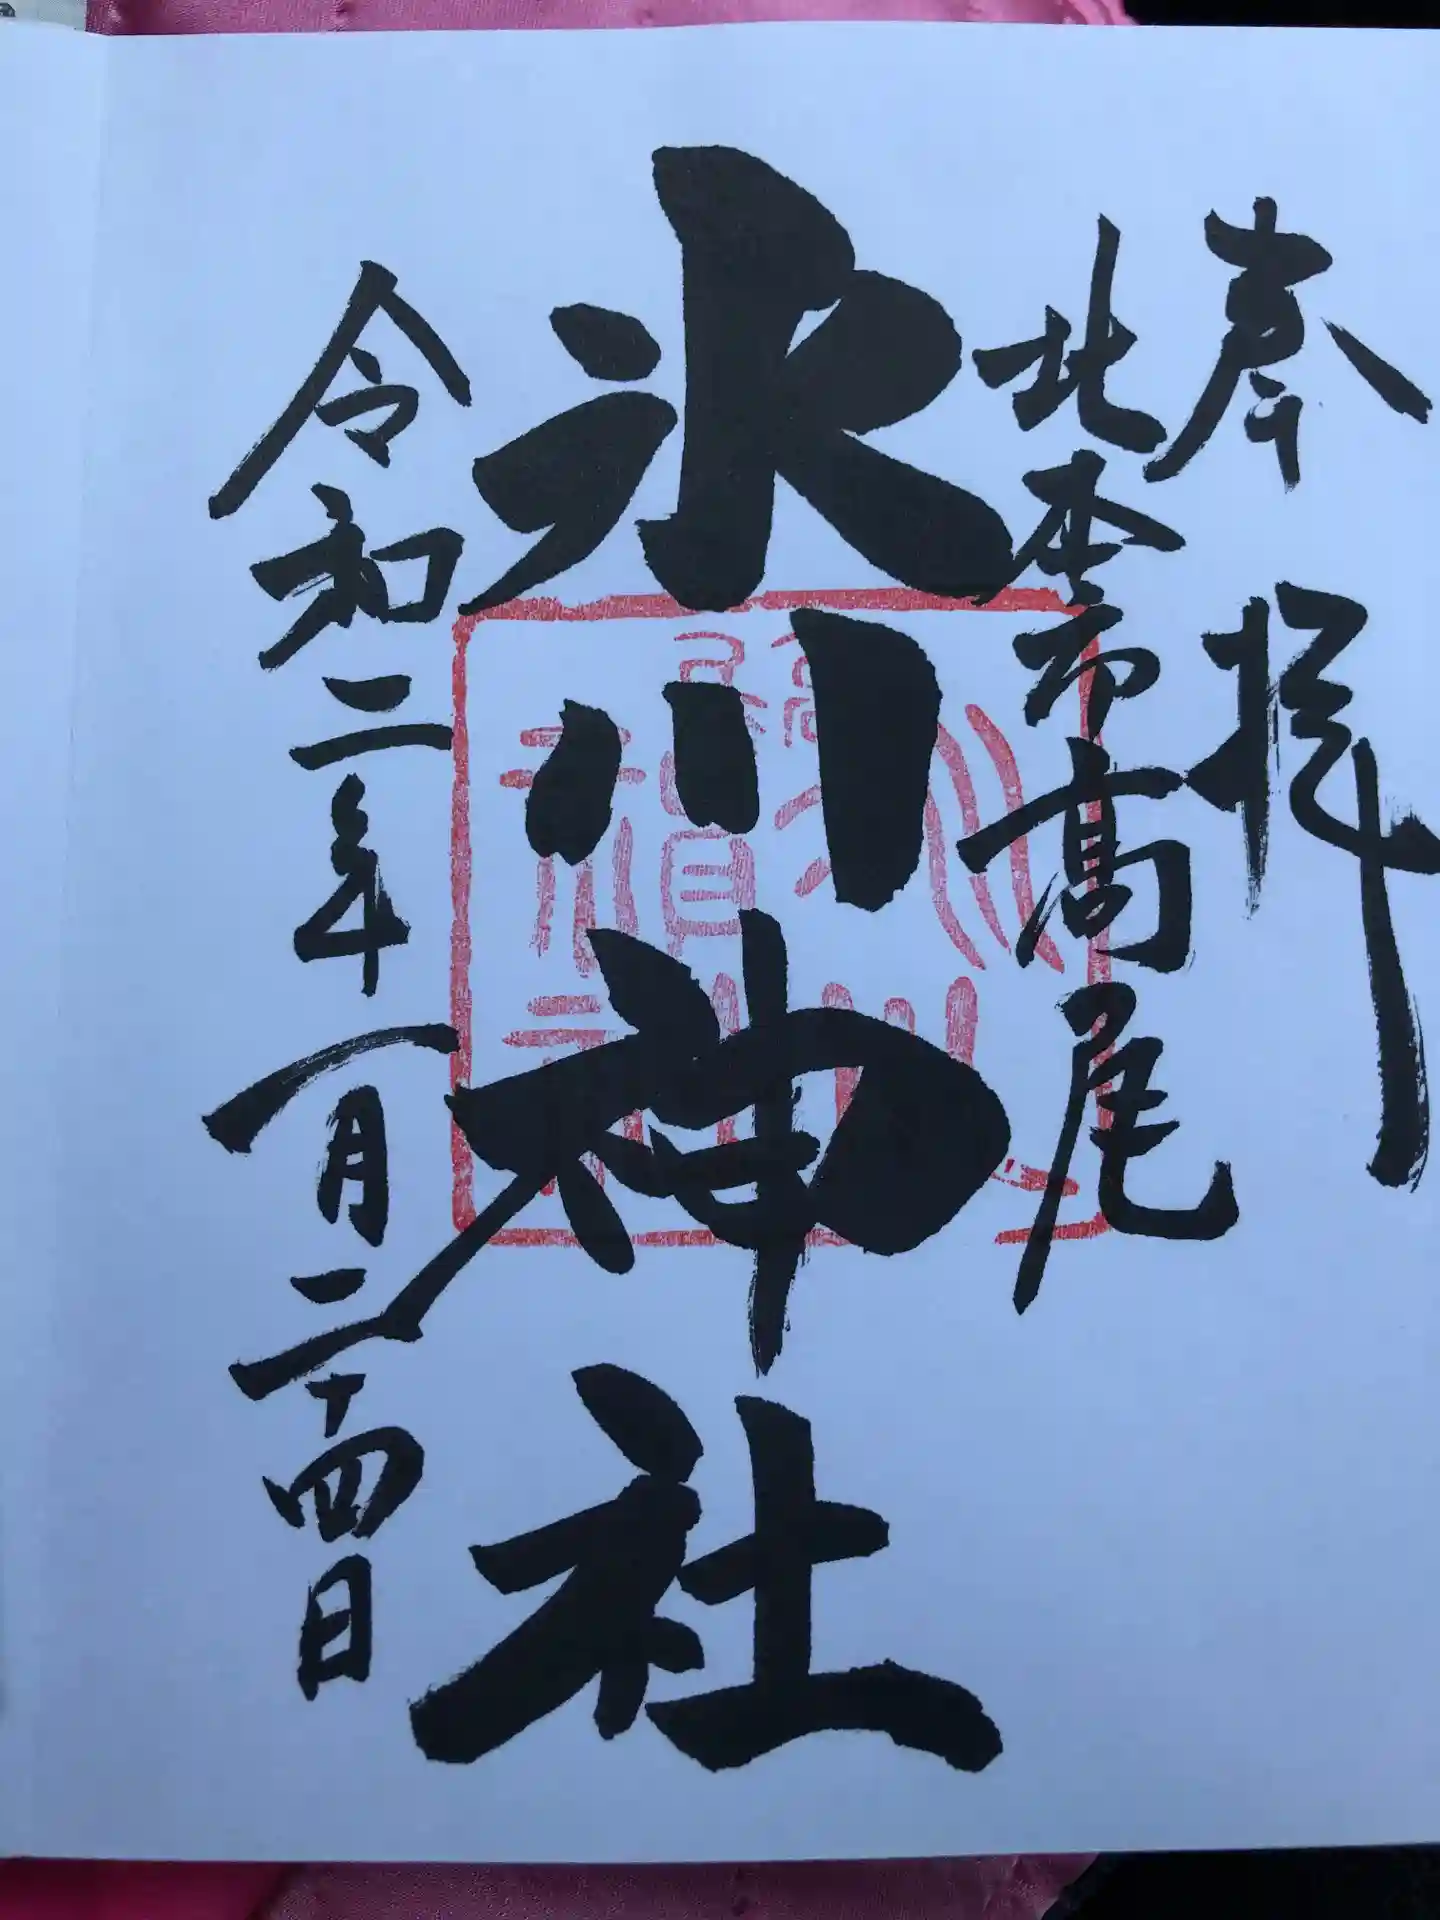 奉拝
北本市高尾
氷川神社
令和二年一月二十四日